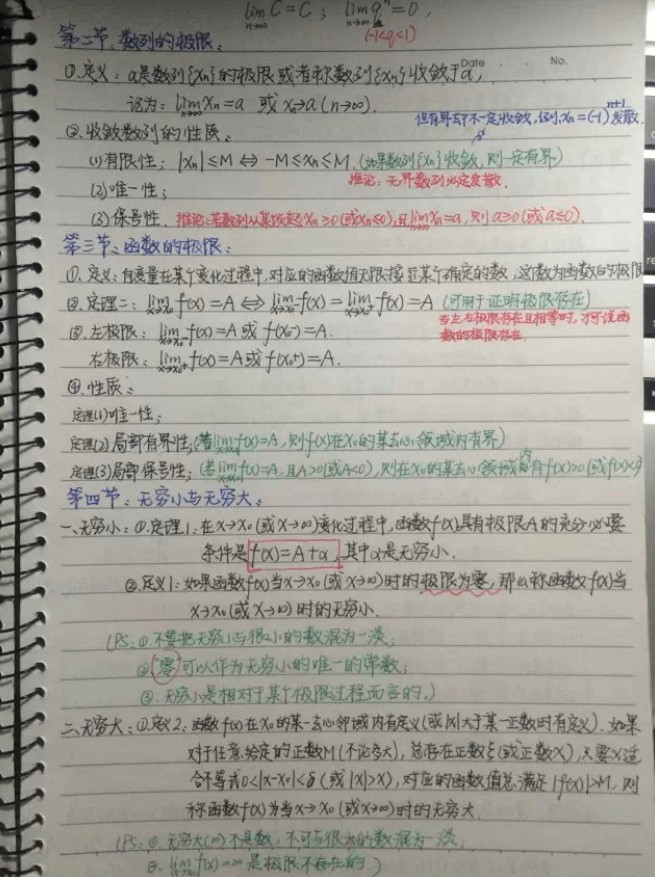 lim C = C ; lim qⁿ = 0 ,
n→∞ n→∞
(-1<q<1)
第二节、数列的极限：
Date No.
①.定义：a是数列{xn}的极限或者称数列{xn}收敛于a,
记为：lim xn = a 或 xn→a (n→∞).
n→∞
但有界却不一定收敛,例xn=(-1)ⁿ⁺¹发散.
②.收敛数列的性质：
(1)有限性：|xn|≤M ⇔ -M≤xn≤M.(如果数列{xn}收敛,则一定有界)
推论：无界数列必定发散.
(2)唯一性；
(3)保号性. 推论：若数列从某项起xn≥0(或xn≤0),且lim xn=a,则a≥0(或a≤0).
第三节、函数的极限：
①.定义：自变量在某个变化过程中,对应的函数值无限接近某个确定的数,这数为函数的极限
②.定理二：lim f(x)=A ⇔ lim f(x)=lim f(x)=A (可用于证明极限存在)
x→x₀ x→x₀⁻ x→x₀⁺
当左右极限存在且相等时,才可说函
数的极限存在.
③.左极限：lim f(x)=A 或 f(x₀⁻)=A.
x→x₀⁻
右极限：lim f(x)=A 或 f(x₀⁺)=A.
x→x₀⁺
④.性质：
定理(1)唯一性；
定理(2)局部有界性；(若lim f(x)=A,则f(x)在x₀的某去心领域内有界)
定理(3)局部保号性；(若lim f(x)=A,且A>0(或A<0),则在x₀的某去心领域内有f(x)>0(或f(x)<0)
第四节：无穷小与无穷大：
一、无穷小：①.定理1：在x→x₀(或x→∞)变化过程中,函数f(x)具有极限A的充分必要
条件是f(x)=A+α,其中α是无穷小.
②.定义1：如果函数f(x)当x→x₀(或x→∞)时的极限为零,那么称函数f(x)当
x→x₀(或x→∞)时的无穷小.
(PS：①.不要把无穷小与很小的数混为一谈；
②.零可以作为无穷小的唯一的常数；
③.无穷小是相对于某个极限过程而言的.)
二、无穷大：①.定义2：函数f(x)在x₀的某一去心邻域内有定义(或|x|大于某一正数时有定义).如果
对于任意给定的正数M(不论多大),总存在正数ξ(或正数X),只要x适
合不等式0<|x-x₀|<δ(或|x|>X),对应的函数值总满足|f(x)|>M,则
称函数f(x)为当x→x₀(或x→∞)时的无穷大.
(PS：①.无穷大(∞)不是数,不可与很大的数混为一谈；
②.lim f(x)=∞是极限不存在的.)